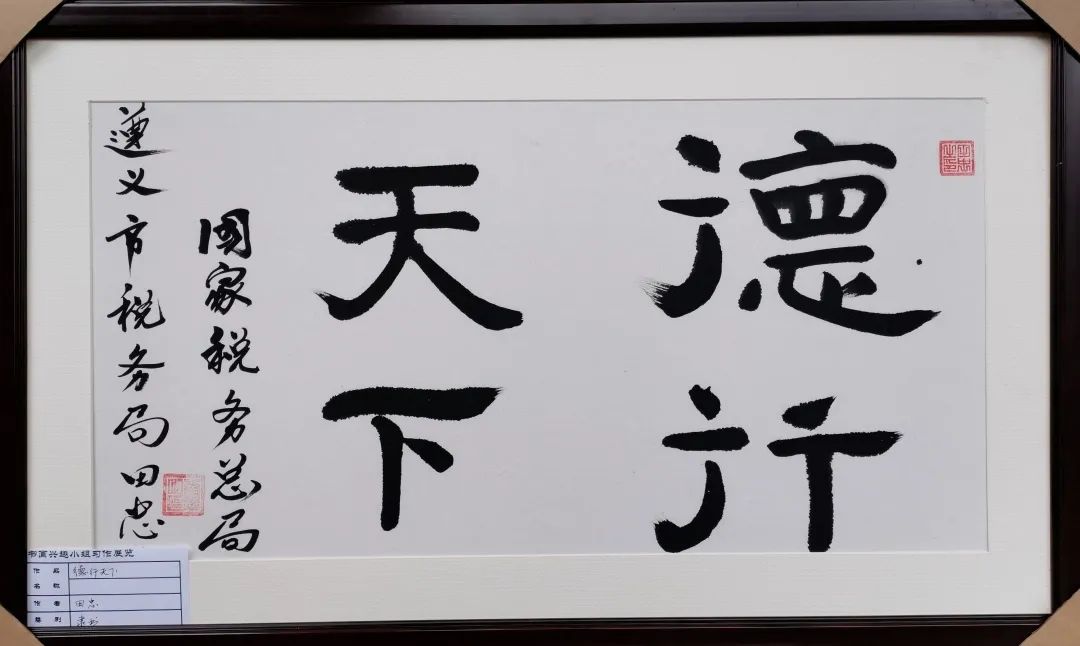 德行
天下
国家税务总局
遵义市税务局田忠
书画兴趣小组习作展览
作品名称 德行天下
作者 田忠
类别 隶书